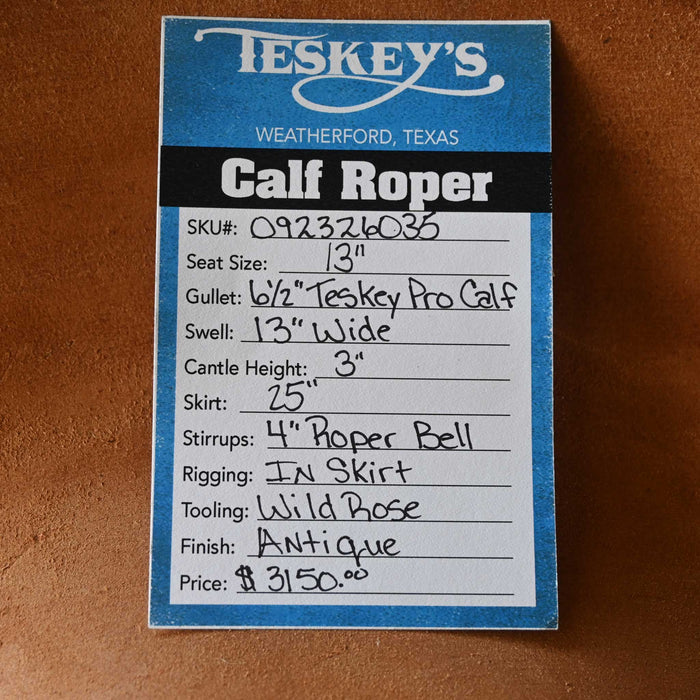 TESKEY'S
WEATHERFORD, TEXAS
Calf Roper
SKU#: 092326035
Seat Size: 13"
Gullet: 6½" Teskey Pro Calf
Swell: 13" Wide
Cantle Height: 3"
Skirt: 25"
Stirrups: 4" Roper Bell
Rigging: IN Skirt
Tooling: Wild Rose
Finish: ANtique
Price: $ 3150.00